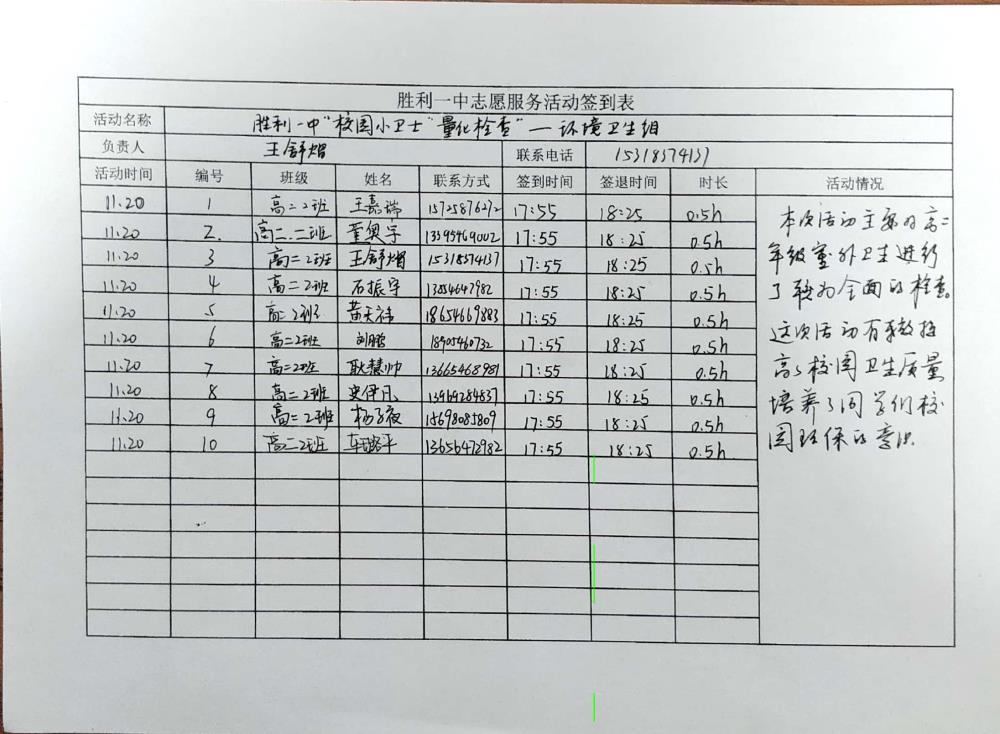 胜利一中志愿服务活动签到表
活动名称 胜利一中"校园小卫士"量化检查"—环境卫生组
负责人 王舒熠 联系电话 15318374137
活动时间 编号 班级 姓名 联系方式 签到时间 签退时间 时长 活动情况
11.20 1 高二2班 王嘉瑞 15725876272 17:55 18:25 0.5h
11.20 2. 高二.二班 董奥宇 13395469002 17:55 18:25 0.5h
11.20 3 高二2班 王舒熠 15318374137 17:55 18:25 0.5h
11.20 4 高二2班 石振宇 13054647982 17:55 18:25 0.5h
11.20 5 高二2班 18654669883 17:55 18:25 0.5h
11.20 6 高二2班 刘鹏 18905460732 17:55 18:25 0.5h
11.20 7 高二2班 耿慧帅 13665468981 17:55 18:25 0.5h
11.20 8 高二2班 史伊凡 17:55 18:25 0.5h
11.20 9 高二2班 杨子夜 17:55 18:25 0.5h
11.20 10 高二2班 车璐平 13656472982 17:55 18:25 0.5h
本次活动主要为高二
年级室外卫生进行
了较为全面的检查。
这次活动有效提
高了校园卫生质量
培养了同学们校
园环保的意识